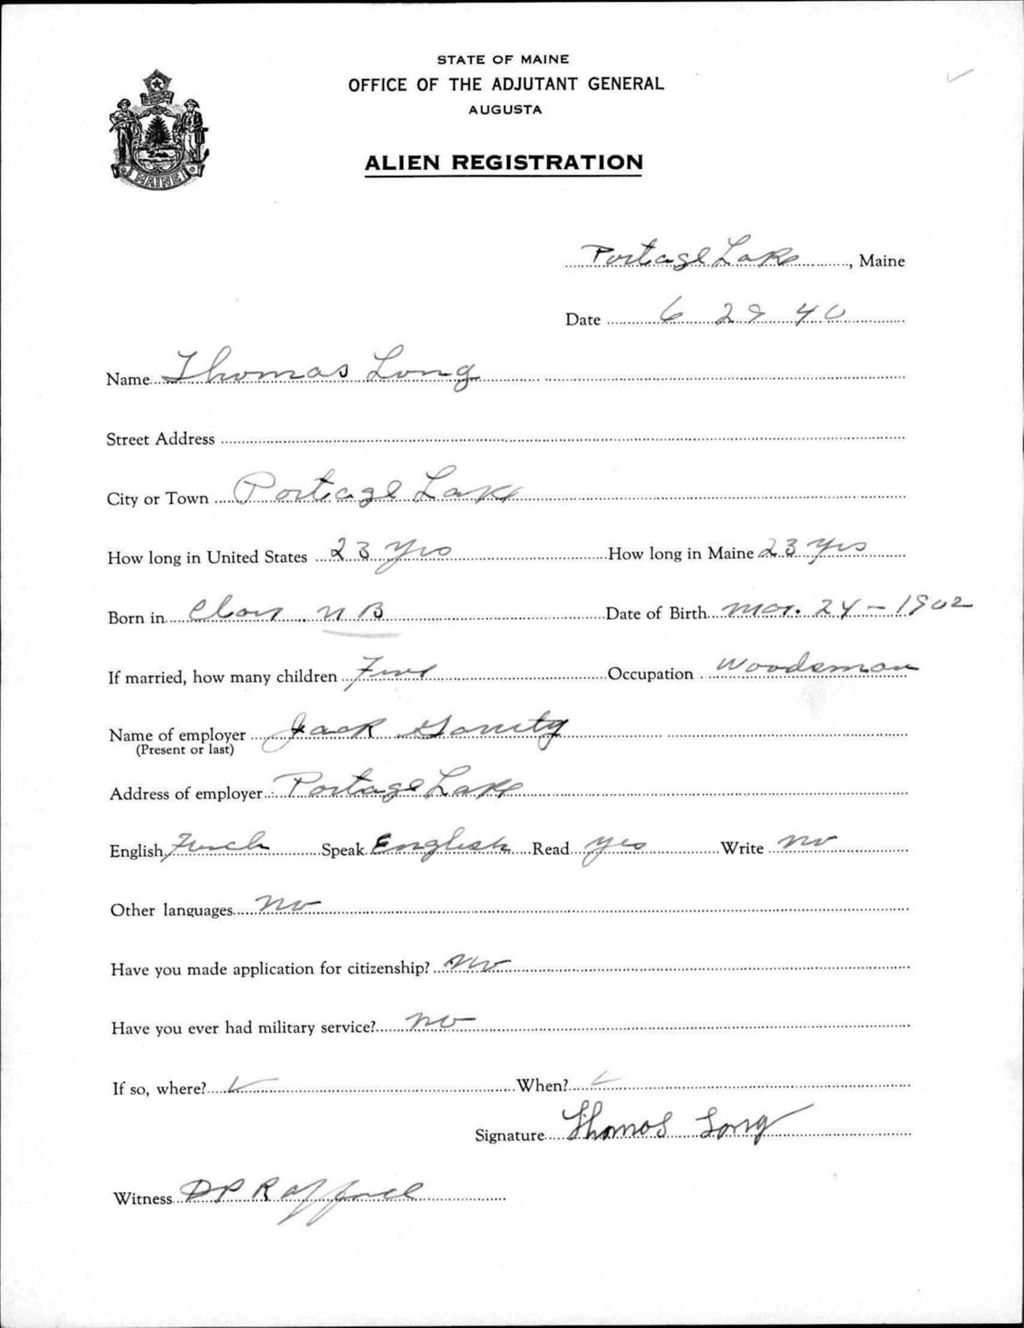 STATE OF MAINE
OFFICE OF THE ADJUTANT GENERAL
AUGUSTA
ALIEN REGISTRATION
MAINE
Portage Lake, Maine
Date 6 29 40
Name Thomas Long
Street Address
City or Town Portage Lake
How long in United States 23 Yrs How long in Maine 23 Yrs
Born in Clair N B Date of Birth Mar. 24 - 1902
If married, how many children Five Occupation Woodsman
Name of employer Jack
(Present or last)
Address of employer Portage Lake
English French Speak English Read yes Write no
Other languages no
Have you made application for citizenship? no
Have you ever had military service? no
If so, where? When?
Signature Thomas Long
Witness D P Rafford